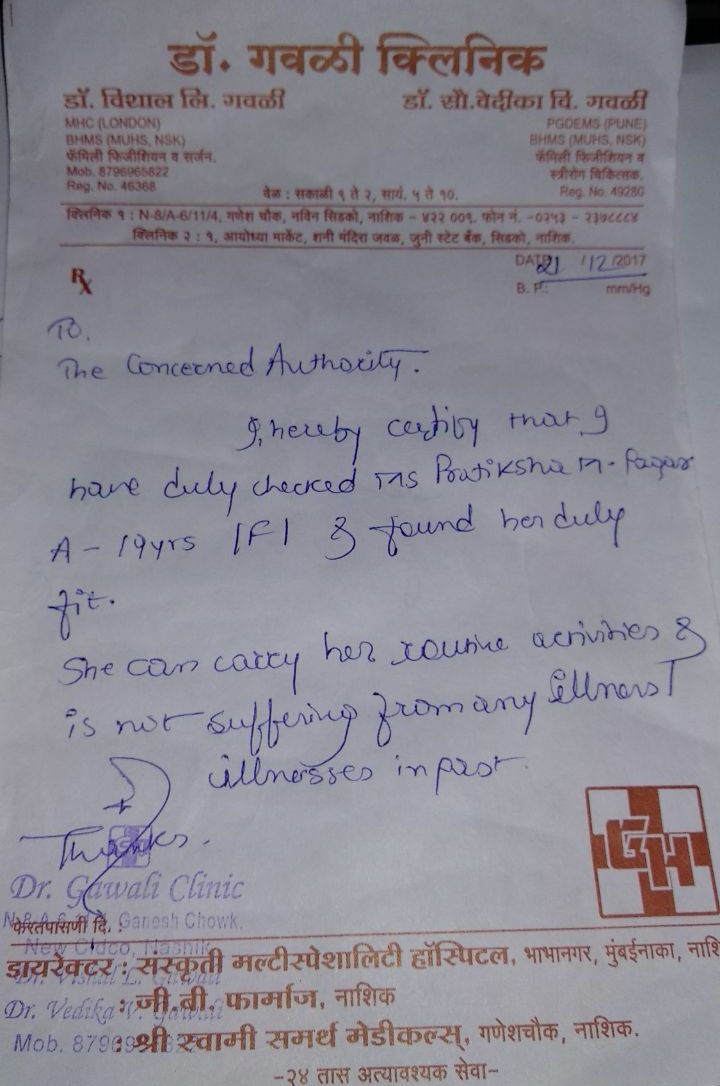 डॉ. गवळी क्लिनिक
डॉ. विशाल लि. गवळी
MHC (LONDON)
BHMS (MUHS, NSK)
फॅमिली फिजीशियन व सर्जन.
Mob. 8796965822
Reg. No. 46368
डॉ. सौ.वेदीका वि. गवळी
PGDEMS (PUNE)
BHMS (MUHS, NSK)
फॅमिली फिजीशियन व
स्त्रीरोग चिकित्सक.
Reg. No. 49280
वेळ : सकाळी ९ ते २, सायं. ५ ते १०.
क्लिनिक १ : N-8/A-6/11/4, गणेश चौक, नविन सिडको, नाशिक - ४२२ ००९. फोन नं. -०२५३ - २३७८८८४
क्लिनिक २ : १, आयोध्या मार्केट, शनी मंदिरा जवळ, जुनी स्टेट बँक, सिडको, नाशिक.
DATE 21 /12/2017
Rx
B. P.: mm/Hg
To,
The Concerned Authority.
I, hereby certify that I
have duly checked Ms Pratiksha M. Pagar
A - 19yrs /F/ & found her duly
fit.
She can carry her routine activities &
is not suffering from any illness/
illnesses in past.
Thanks.
GH
Dr. Gawali Clinic
Ganesh Chowk,
फेरतपासणी दि. :
New Cidco, Nashik
डायरेक्टर : संस्कृती मल्टीस्पेशालिटी हॉस्पिटल, भाभानगर, मुंबईनाका,
Dr. Vishal L. Gawali
: जी.बी. फार्माज, नाशिक
Dr. Vedika V. Gawali
: श्री स्वामी समर्थ मेडीकल्स्, गणेशचौक, नाशिक.
Mob.
-२४ तास अत्यावश्यक सेवा-